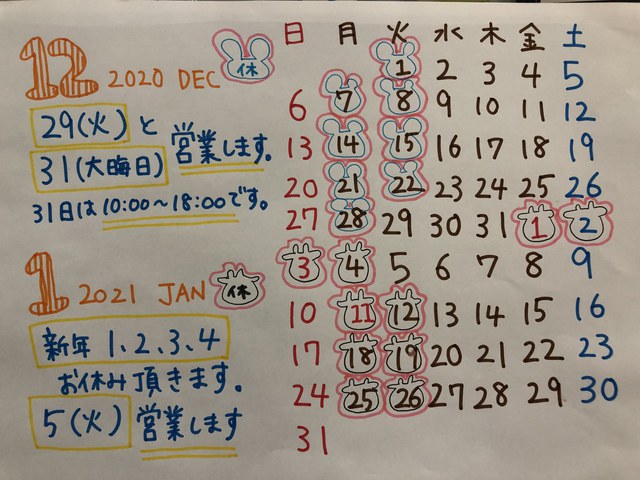 12 2020 DEC 休
29(火)と
31(大晦日)営業します。
31日は10:00〜18:00です。
1 2021 JAN 休
新年 1.2.3.4
お休み頂きます。
5(火)営業します
日 月 火 水 木 金 土
1 2 3 4 5
6 7 8 9 10 11 12
13 14 15 16 17 18 19
20 21 22 23 24 25 26
27 28 29 30 31 1 2
3 4 5 6 7 8 9
10 11 12 13 14 15 16
17 18 19 20 21 22 23
24 25 26 27 28 29 30
31